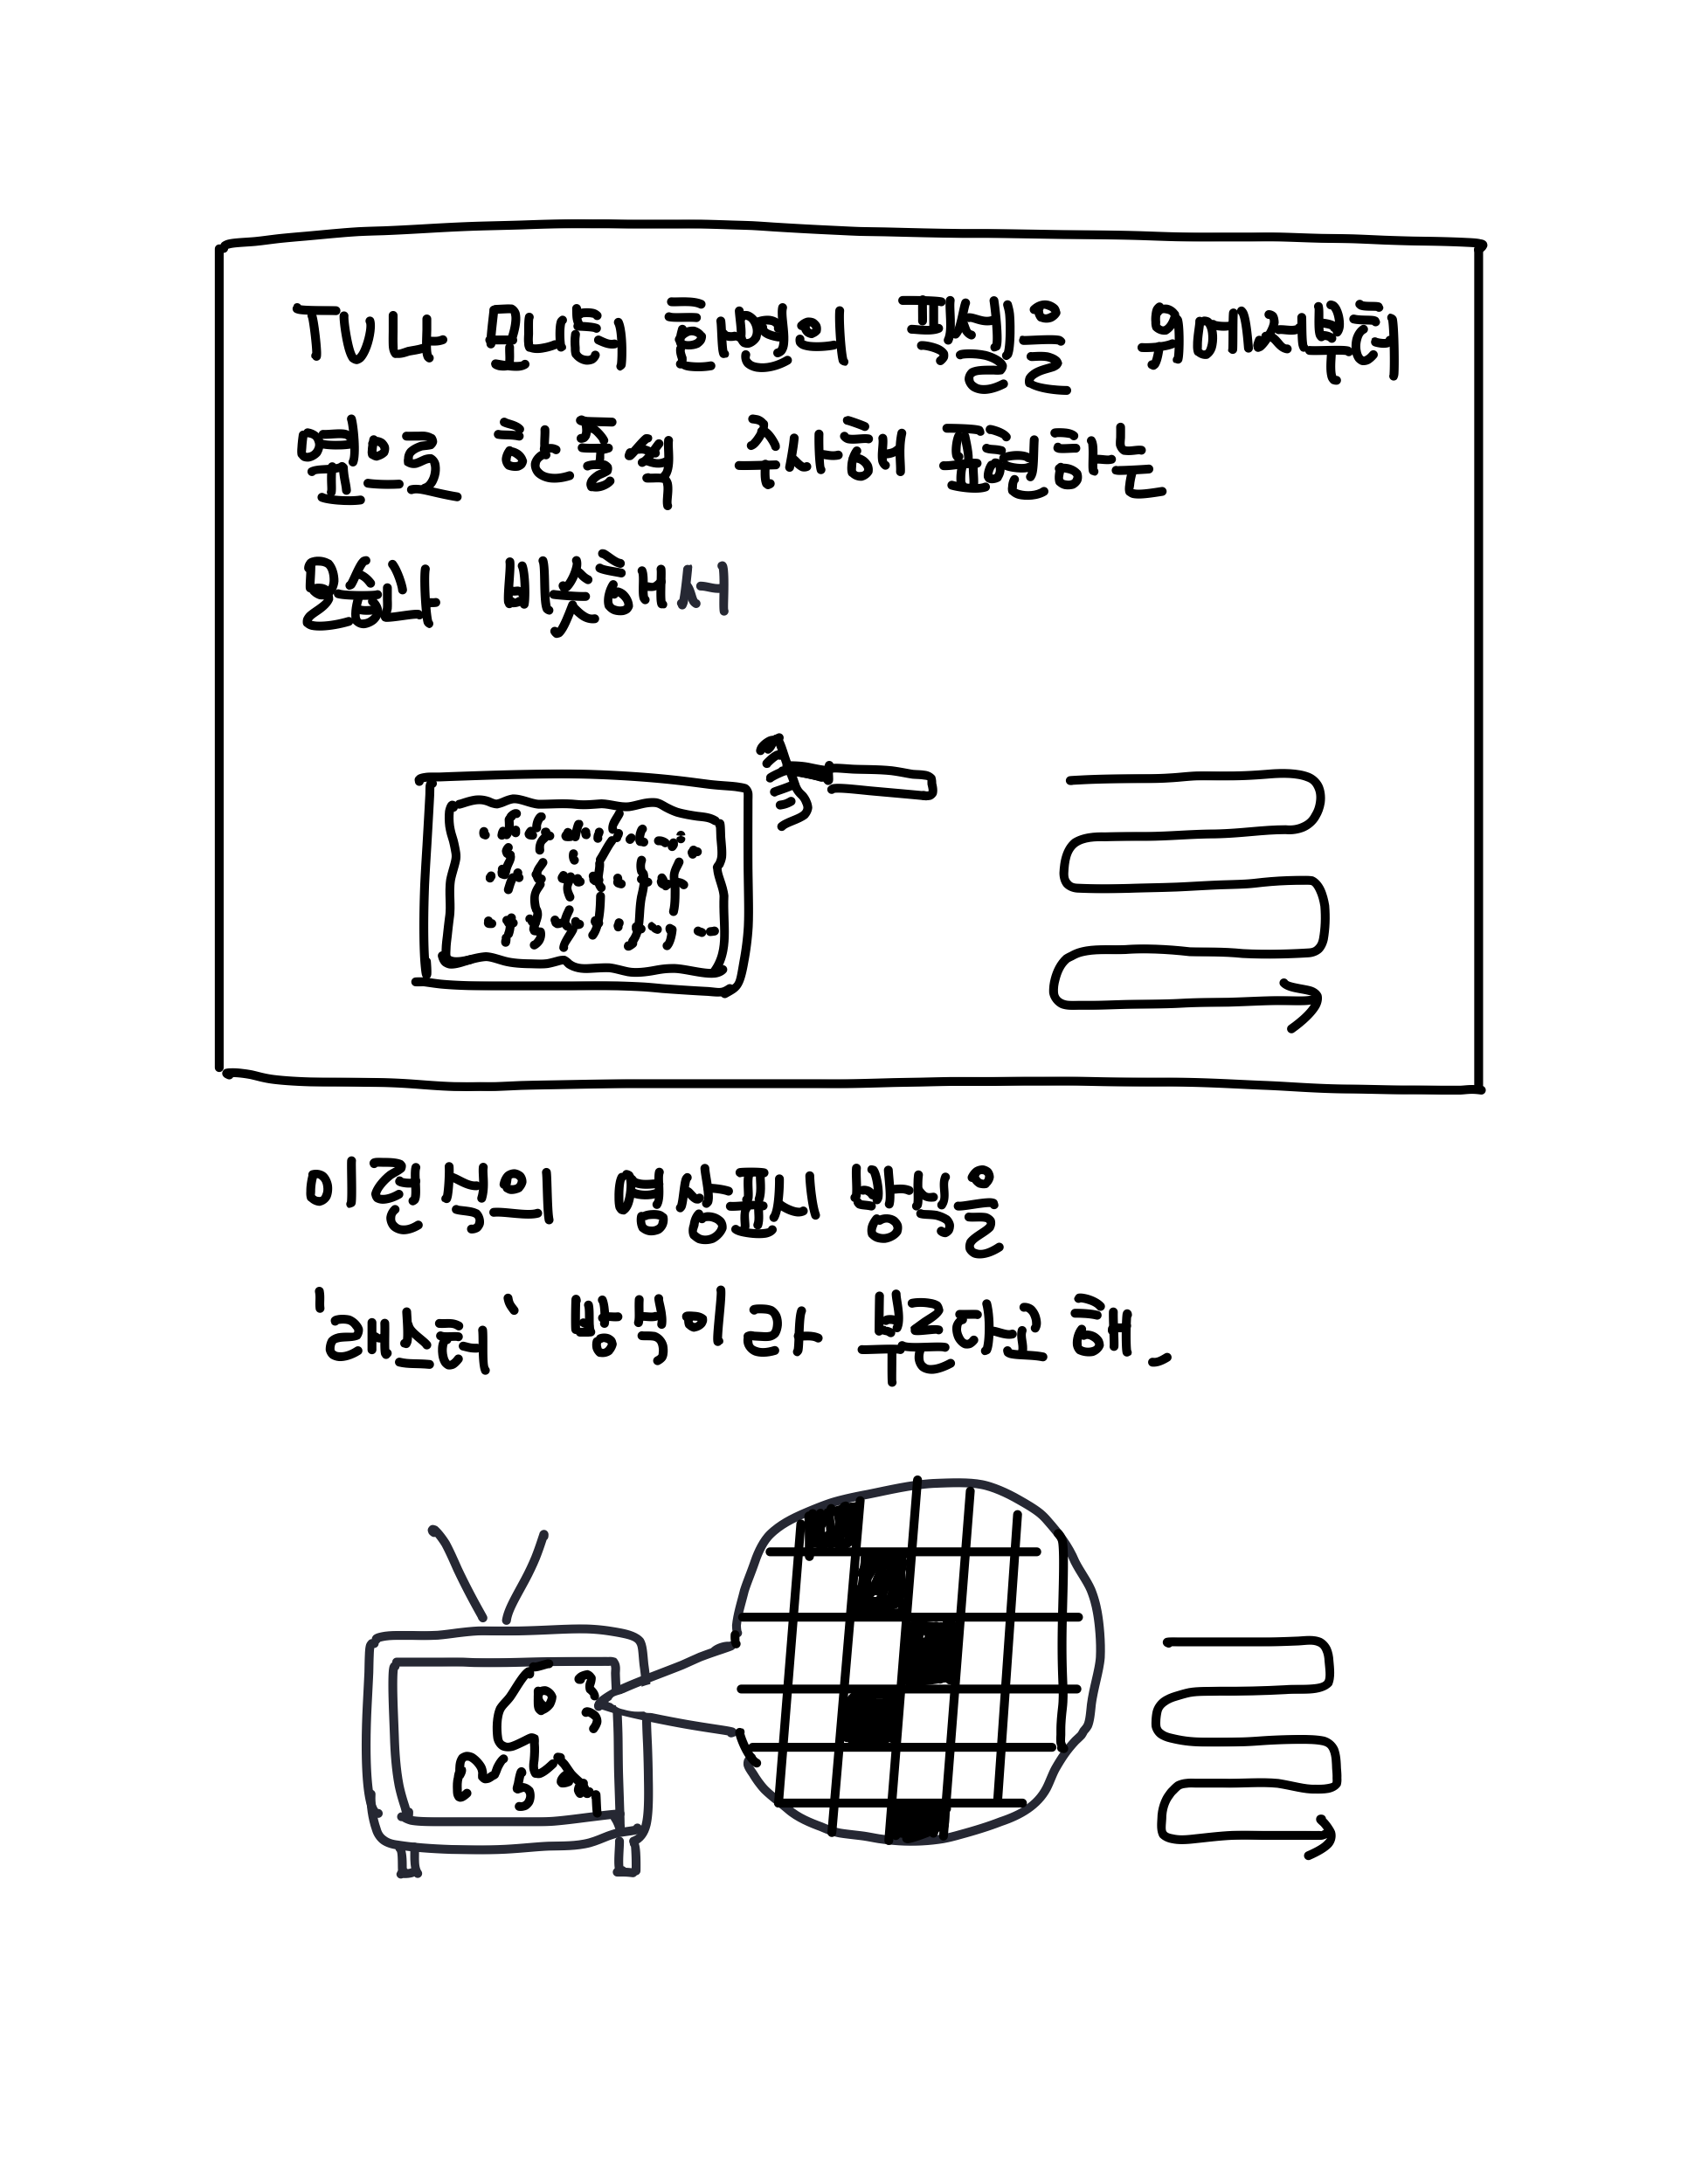 TV나 모니터 화면의 픽셀을 위에서부터
옆으로 한줄씩 주사해 표현하는
모습과 비슷해서
이런식의 영상표시 방식을
'래스터' 방식이라 부른다고 해.